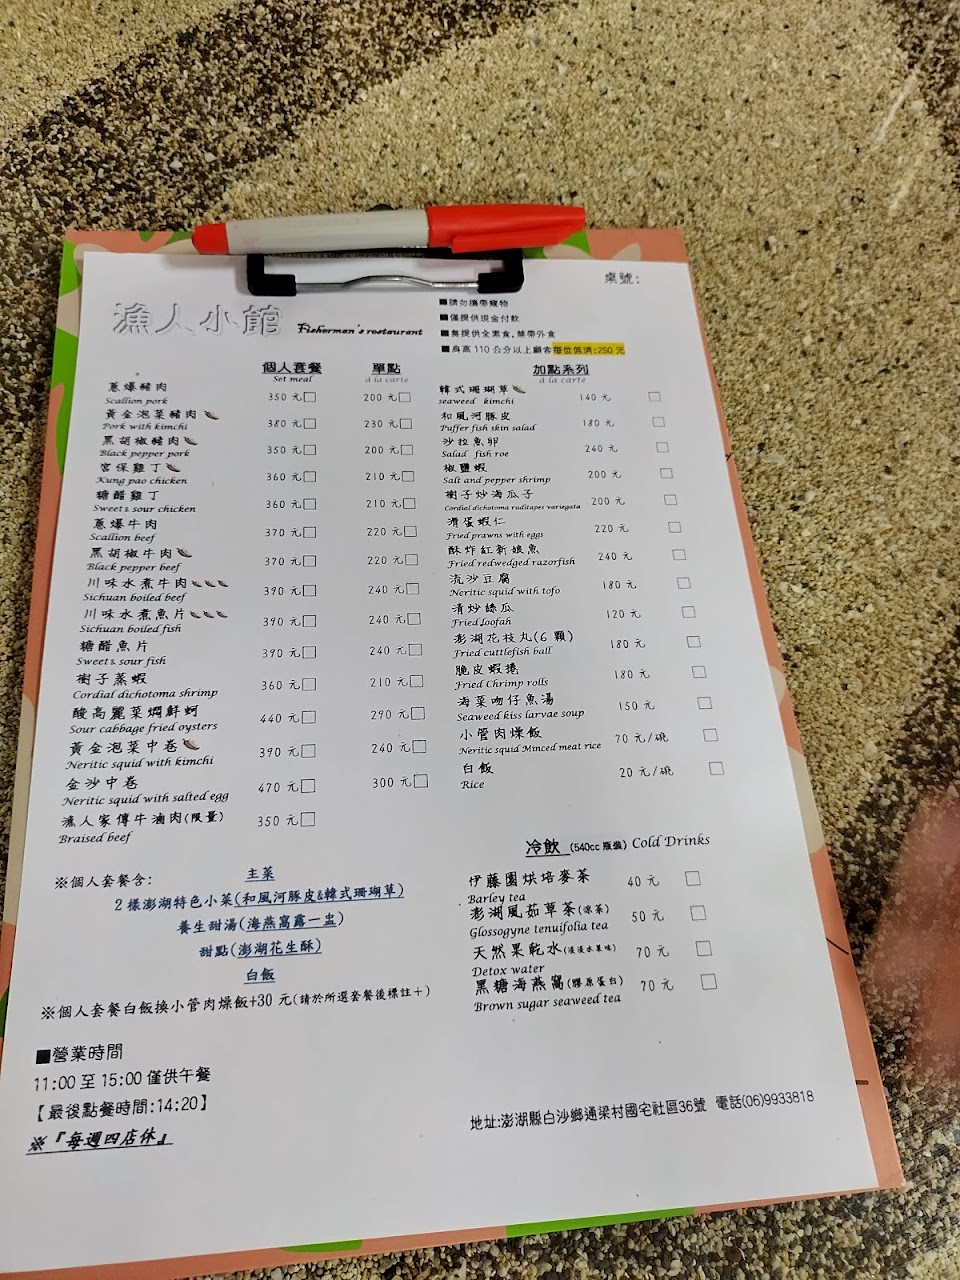 桌號:
漁人小館 Fisherman's restaurant
■請勿攜帶寵物
■僅提供現金付款
■無提供全素食,禁帶外食
■身高 110 公分以上顧客每位低消:250 元
個人套餐 單點
Set meal à la carte
蔥爆豬肉 350 元□ 200 元□
Scallion pork
黃金泡菜豬肉 380 元□ 230 元□
Pork with kimchi
黑胡椒豬肉 350 元□ 200 元□
Black pepper pork
宮保雞丁 360 元□ 210 元□
Kung pao chicken
糖醋雞丁 360 元□ 210 元□
Sweet & sour chicken
蔥爆牛肉 370 元□ 220 元□
Scallion beef
黑胡椒牛肉 370 元□ 220 元□
Black pepper beef
川味水煮牛肉 390 元□ 240 元□
Sichuan boiled beef
川味水煮魚片 390 元□ 240 元□
Sichuan boiled fish
糖醋魚片 390 元□ 240 元□
Sweet & sour fish
樹子蒸蝦 360 元□ 210 元□
Cordial dichotoma shrimp
酸高麗菜燜鮮蚵 440 元□ 290 元□
Sour cabbage fried oysters
黃金泡菜中卷 390 元□ 240 元□
Neritic squid with kimchi
金沙中卷 470 元□ 300 元□
Neritic squid with salted egg
漁人家傳牛滷肉(限量) 350 元□
Braised beef
加點系列
à la carte
韓式珊瑚草 140 元 □
seaweed kimchi
和風河豚皮 180 元 □
Puffer fish skin salad
沙拉魚卵 240 元 □
Salad fish roe
椒鹽蝦 200 元 □
Salt and pepper shrimp
樹子炒海瓜子 200 元 □
Cordial dichotoma ruditapes variegata
滑蛋蝦仁 220 元 □
Fried prawns with eggs
酥炸紅新娘魚 240 元 □
Fried redwedged razorfish
流沙豆腐 180 元 □
Neritic squid with tofo
清炒絲瓜 120 元 □
Fried loofah
澎湖花枝丸(6 顆) 180 元 □
Fried cuttlefish ball
脆皮蝦捲 180 元 □
Fried Chrimp rolls
海菜吻仔魚湯 150 元 □
Seaweed kiss larvae soup
小管肉燥飯 70 元/碗 □
Neritic squid Minced meat rice
白飯 20 元/碗 □
Rice
※個人套餐含: 主菜
2 樣澎湖特色小菜(和風河豚皮&韓式珊瑚草)
養生甜湯(海燕窩露一盅)
甜點(澎湖花生酥)
白飯
※個人套餐白飯換小管肉燥飯+30 元(請於所選套餐後標註+)
冷飲 (540cc 瓶裝) Cold Drinks
伊藤園烘培麥茶 40 元 □
Barley tea
澎湖風茹草茶(涼茶) 50 元 □
Glossogyne tenuifolia tea
天然果乾水(淡淡水果味) 70 元 □
Detox water
黑糖海燕窩(膠原蛋白) 70 元 □
Brown sugar seaweed tea
■營業時間
11:00 至 15:00 僅供午餐
【最後點餐時間:14:20】
※『每週四店休』
地址:澎湖縣白沙鄉通梁村國宅社區36號 電話(06)9933818